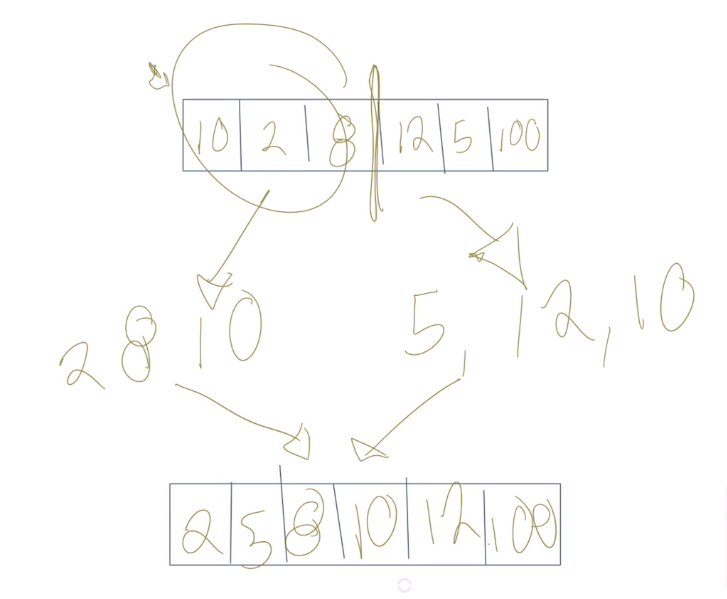 10 2 8 12 5 100
2 8 10 5, 12, 10
2 5 8 10 12 100